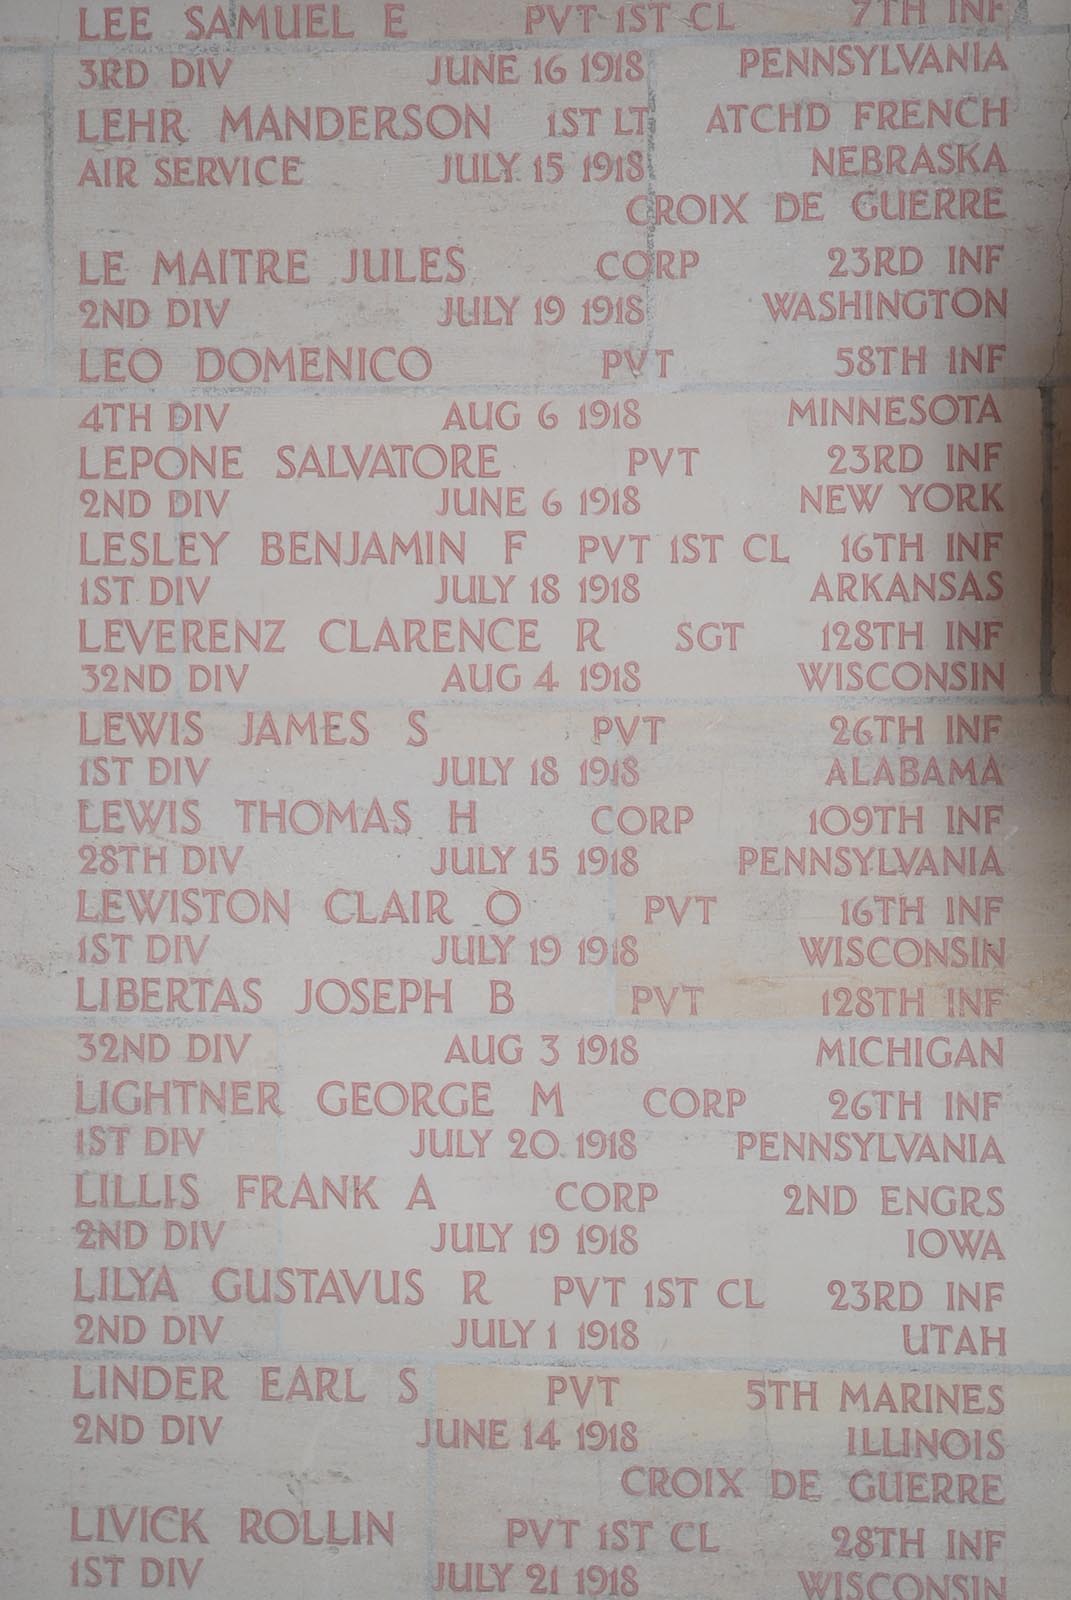 LEE SAMUEL E PVT 1ST CL 7TH INF
3RD DIV JUNE 16 1918 PENNSYLVANIA
LEHR MANDERSON 1ST LT ATCHD FRENCH
AIR SERVICE JULY 15 1918 NEBRASKA
CROIX DE GUERRE
LE MAITRE JULES CORP 23RD INF
2ND DIV JULY 19 1918 WASHINGTON
LEO DOMENICO PVT 58TH INF
4TH DIV AUG 6 1918 MINNESOTA
LEPONE SALVATORE PVT 23RD INF
2ND DIV JUNE 6 1918 NEW YORK
LESLEY BENJAMIN F PVT 1ST CL 16TH INF
1ST DIV JULY 18 1918 ARKANSAS
LEVERENZ CLARENCE R SGT 128TH INF
32ND DIV AUG 4 1918 WISCONSIN
LEWIS JAMES S PVT 26TH INF
1ST DIV JULY 18 1918 ALABAMA
LEWIS THOMAS H CORP 109TH INF
28TH DIV JULY 15 1918 PENNSYLVANIA
LEWISTON CLAIR O PVT 16TH INF
1ST DIV JULY 19 1918 WISCONSIN
LIBERTAS JOSEPH B PVT 128TH INF
32ND DIV AUG 3 1918 MICHIGAN
LIGHTNER GEORGE M CORP 26TH INF
1ST DIV JULY 20 1918 PENNSYLVANIA
LILLIS FRANK A CORP 2ND ENGRS
2ND DIV JULY 19 1918 IOWA
LILYA GUSTAVUS R PVT 1ST CL 23RD INF
2ND DIV JULY 1 1918 UTAH
LINDER EARL S PVT 5TH MARINES
2ND DIV JUNE 14 1918 ILLINOIS
CROIX DE GUERRE
LIVICK ROLLIN PVT 1ST CL 28TH INF
1ST DIV JULY 21 1918 WISCONSIN